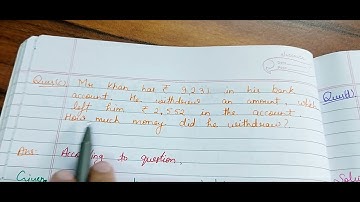 Ques(c) Mr Khan has ₹ 9,231 in his bank
account. He withdrew an amount, which
left him ₹ 2,552 in the account.
How much money did he withdraw?
Ans: According to question,
Given
Ques(d)